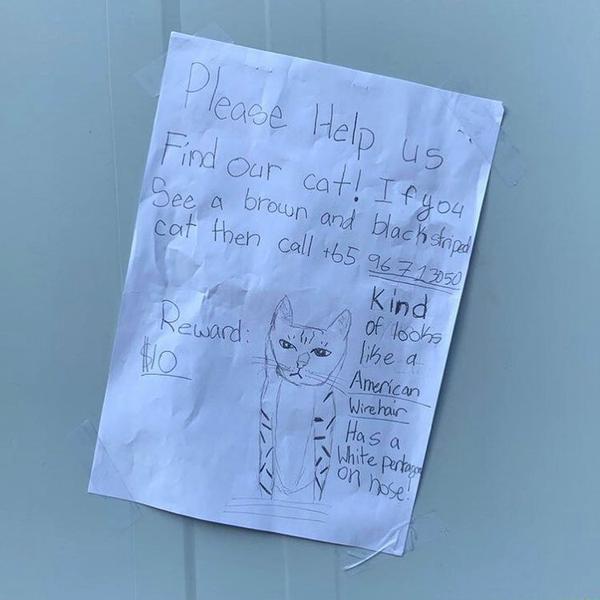 Please Help us
Find our cat! If you
See a brown and black striped
cat then call +65 96713050
Reward:
$10
Kind
of looks
like a
American
Wirehair
Has a
White pentagon
on nose!